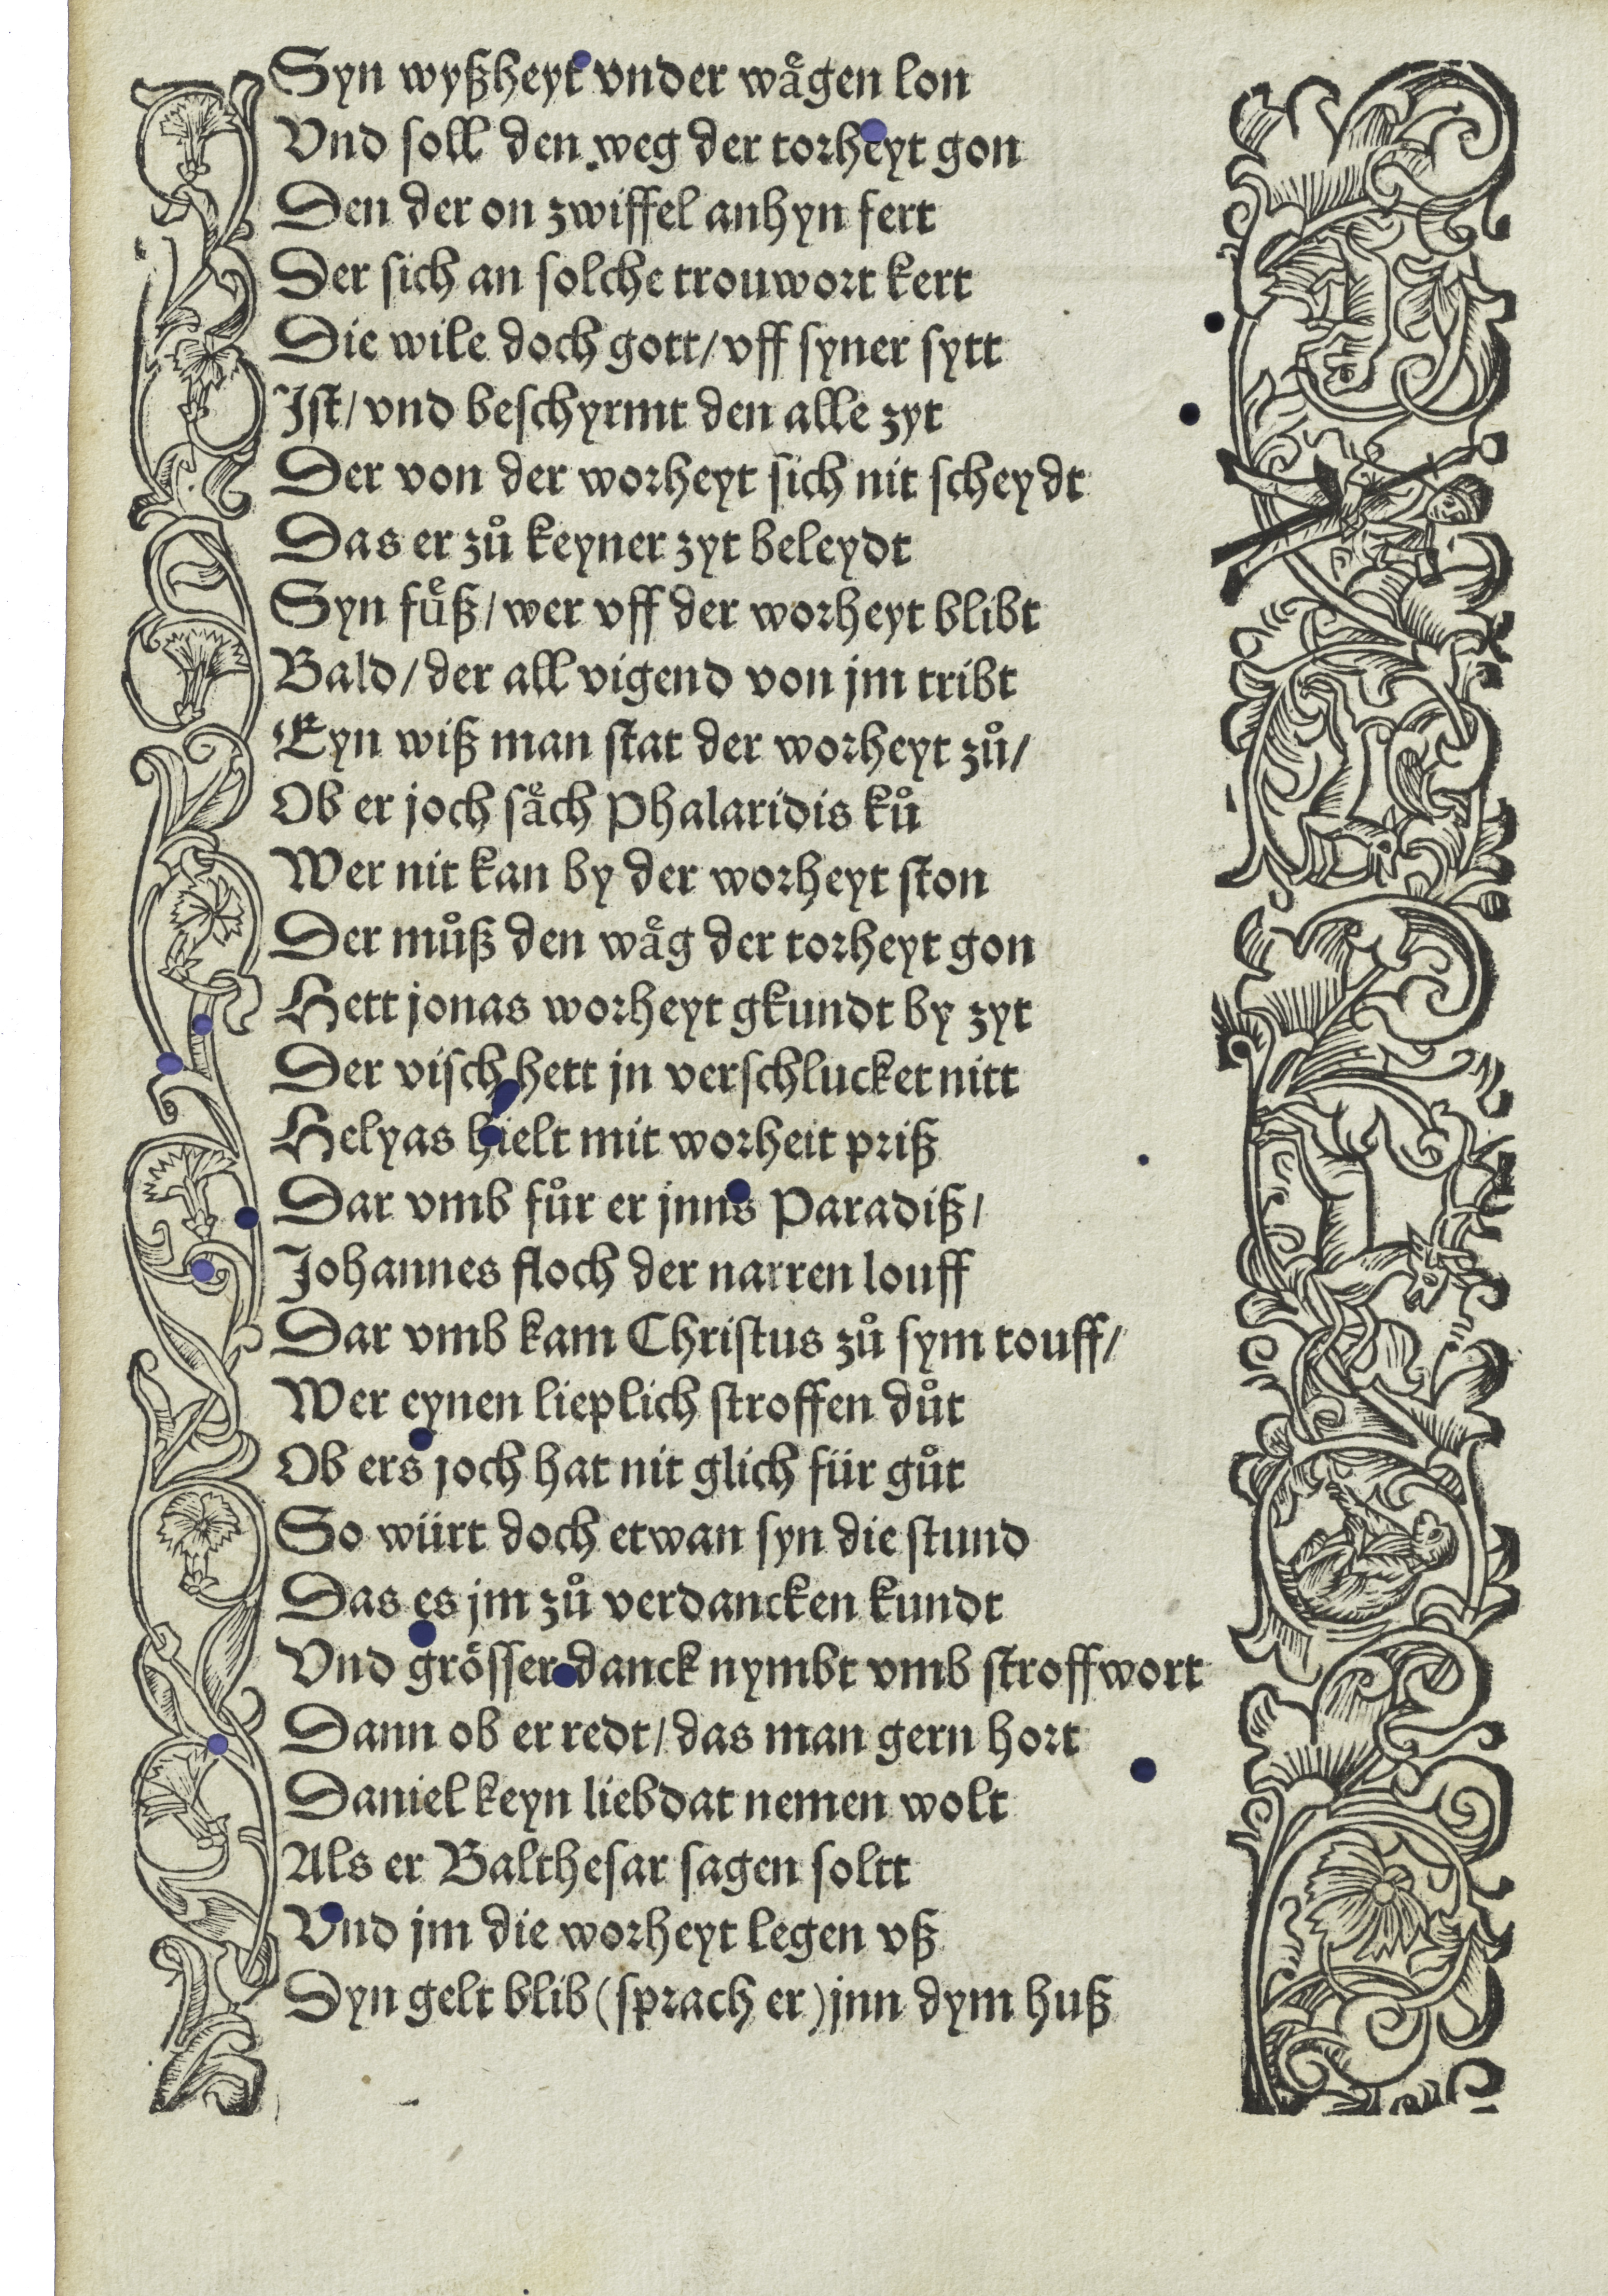 Syn wyßheyt vnder wåͤgen lon
Vnd soll den weg der torheyt gon
Den der on zwiffel anhyn fert
Der sich an solche trouwort kert
Die wile doch gott/ vff syner sytt
Jst/ vnd beschyrmt den alle zyt
Der von der worheyt sich nit scheydt
Das er zuͦ keyner zyt beleydt
Syn fuͤß/ wer vff der worheyt blibt
Bald/ der all vigend von jm tribt
Eyn wiß man stat der worheyt zuͦ/
Ob er joch saͤch Phalaridis kuͦ
Wer nit kan by der worheyt ston
Der muͦß den waͤg der torheyt gon
Hett jonas worheyt gkundt by zyt
Der visch hett jn verschlucket nitt
Helyas hielt mit worheit priß
Dar vmb fuͦr er jnns Paradiß/
Johannes floch der narren louff
Dar vmb kam Christus zuͦ sym touff/
Wer eynen lieplich stroffen duͦt
Ob ers joch hat nit glich für guͦt
So würt doch etwan syn die stund
Das es jm zuͦ verdancken kundt
Vnd groͤsser danck nymbt vmb stroffwort
Dann ob er redt/ das man gern hort
Daniel keyn liebdat nemen wolt
Als er Balthesar sagen soltt
Vnd jm die worheyt legen vß
Dyn gelt blib (sprach er) jnn dym huß